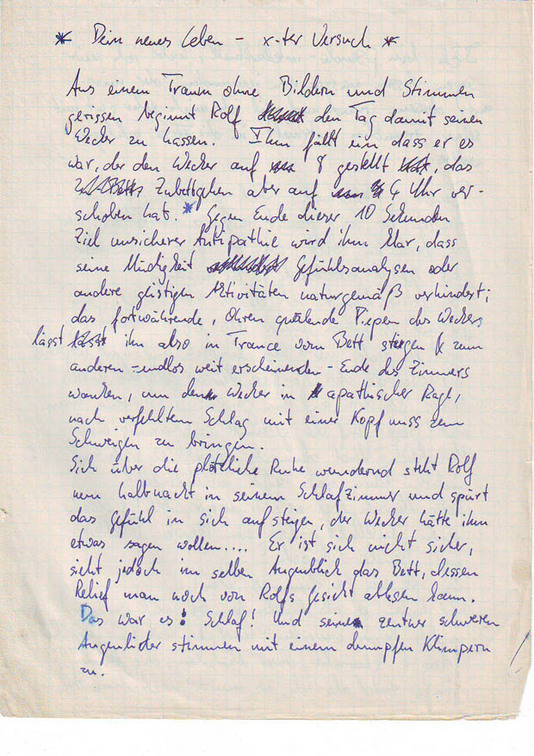 * Dein neues Leben - x-ter Versuch *
Aus einem Traum ohne Bildern und Stimmen
gerissen beginnt Rolf den Tag damit seinen
Wecker zu hassen. Ihm fällt ein dass er es
war, der den Wecker auf 8 gestellt, das
Zubettgehen aber auf 4 Uhr ver-
schoben hat. * Gegen Ende dieser 10 Sekunden
Ziel unsicherer Antipathie wird ihm klar, dass
seine Müdigkeit Gefühlsanalysen oder
andere geistigen Aktivitäten naturgemäß verhindert;
das fortwährende, Ohren quälende Piepen des Weckers
lässt ihn also in Trance vom Bett steigen & zum
anderen - endlos weit erscheinenden - Ende des Zimmers
wanken, um den Wecker in apathischer Rage,
nach verfehltem Schlag mit einer Kopfnuss zum
Schweigen zu bringen.
Sich über die plötzliche Ruhe wundernd steht Rolf
nun halbnackt in seinem Schlafzimmer und spürt
das Gefühl in sich aufsteigen, der Wecker hätte ihm
etwas sagen wollen.... Er ist sich nicht sicher,
sieht jedoch im selben Augenblick das Bett, dessen
Relief man noch von Rolfs Gesicht ablesen kann.
Das war es: Schlaf! Und seine zentner schweren
Augenlider stimmen mit einem dumpfen Klimpern
zu.